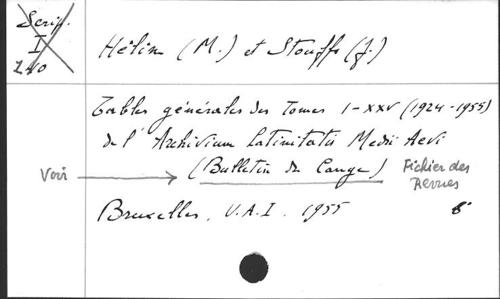 Scrip.
I
240
Hélin (M.) et Stouff (J.)
Tables générales des Tomes I-XXV (1924-1955)
de l'Archivium Latinitatis Medii Aevi
Voir → (Bulletin Du Cange) Fichier des Revues
Bruxelles, U.A.I. 1955 8°